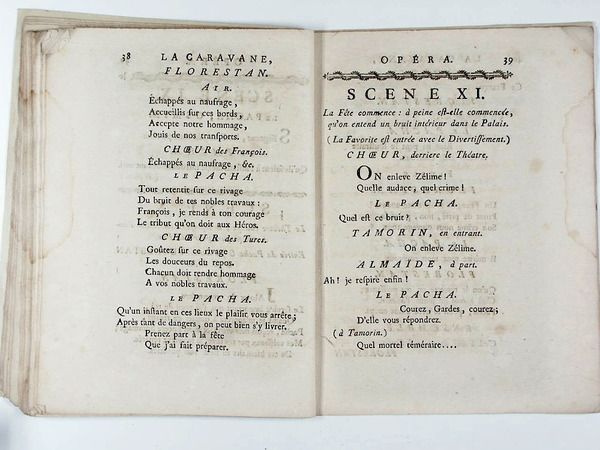 38 LA CARAVANE,
FLORESTAN.
AIR.
Échappés au naufrage,
Accueillis sur ces bords,
Accepte notre hommage,
Jouis de nos transports.
CHŒUR des François.
Échappés au naufrage, &c.
LE PACHA.
Tout retentit sur ce rivage
Du bruit de tes nobles travaux :
François, je rends à ton courage
Le tribut qu'on doit aux Héros.
CHŒUR des Turcs.
Goûtez sur ce rivage
Les douceurs du repos.
Chacun doit rendre hommage
A vos nobles travaux.
LE PACHA.
Qu'un instant en ces lieux le plaisir vous arrête ;
Après tant de dangers, on peut bien s'y livrer.
Prenez part à la fête
Que j'ai fait préparer.
OPÉRA. 39
SCENE XI.
La Fête commence : à peine est-elle commencée,
qu'on entend un bruit intérieur dans le Palais.
(La Favorite est entrée avec le Divertissement.)
CHŒUR, derriere le Théatre.
ON enleve Zélime !
Quelle audace, quel crime !
LE PACHA.
Quel est ce bruit ?
TAMORIN, en entrant.
On enleve Zélime.
ALMAÏDE, à part.
Ah ! je respire enfin !
LE PACHA.
Courez, Gardes, courez ;
D'elle vous répondrez.
(à Tamorin.)
Quel mortel téméraire....